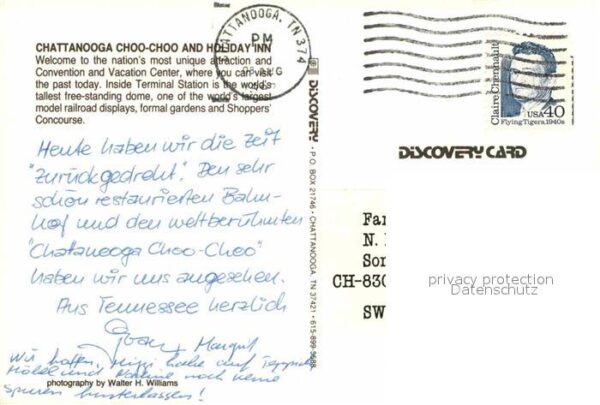 CHATTANOOGA CHOO-CHOO AND HOLIDAY INN
Welcome to the nation's most unique attraction and
Convention and Vacation Center, where you can visit
the past today. Inside Terminal Station is the world's
tallest free-standing dome, one of the world's largest
model railroad displays, formal gardens and Shoppers'
Concourse.
CHATTANOOGA, TN 374
PM
AUG
Claire Chennault
USA 40
Flying Tigers, 1940s
Heute haben wir die Zeit
"zurückgedreht". Den sehr
schön restaurierten Bahn-
hof und den weltberühmten
"Chatanooga Choo-Choo"
haben wir uns angesehen.
Aus Tennessee herzlich
Margrit
Wir hoffen, habe auf Teppich,
Möbel und noch keine
Spuren hinterlassen!
photography by Walter H. Williams
DISCOVERY • P.O. BOX 21746 • CHATTANOOGA, TN 37421 • 615-899-5688
DISCOVERY CARD
Fa
N.
Sor
CH-830
SW
privacy protection
Datenschutz